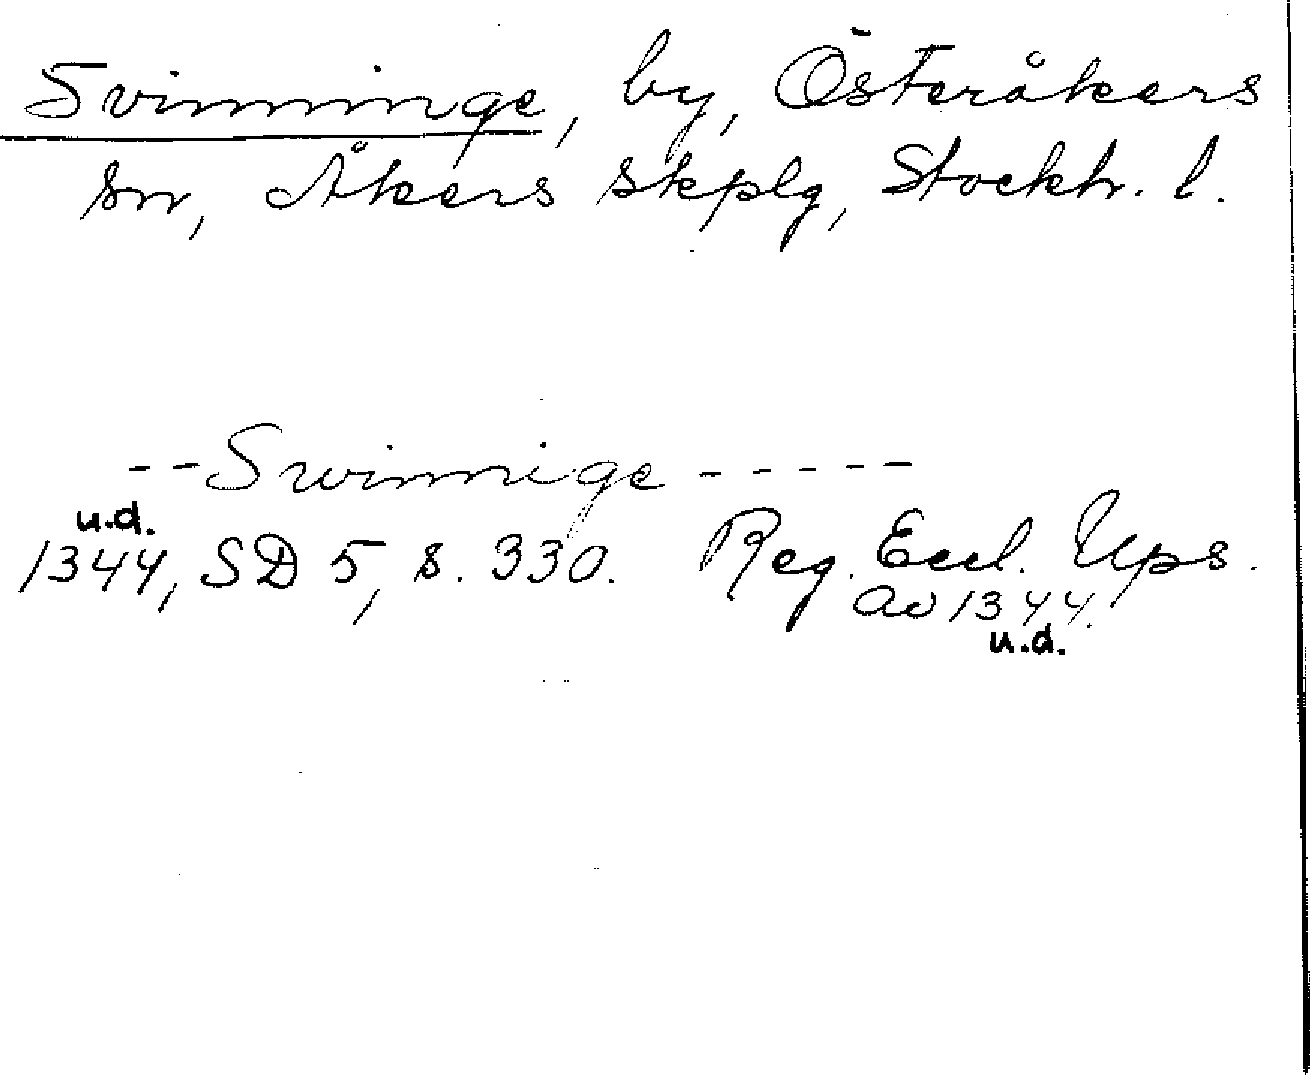 Svinninge, by, Österåkers
sn, Åkers skplg, Stockh. l.
--Swinnige-----
u.d.
1344, SD 5, s. 330. Reg. Eccl. Ups.
av 1344.
u.d.